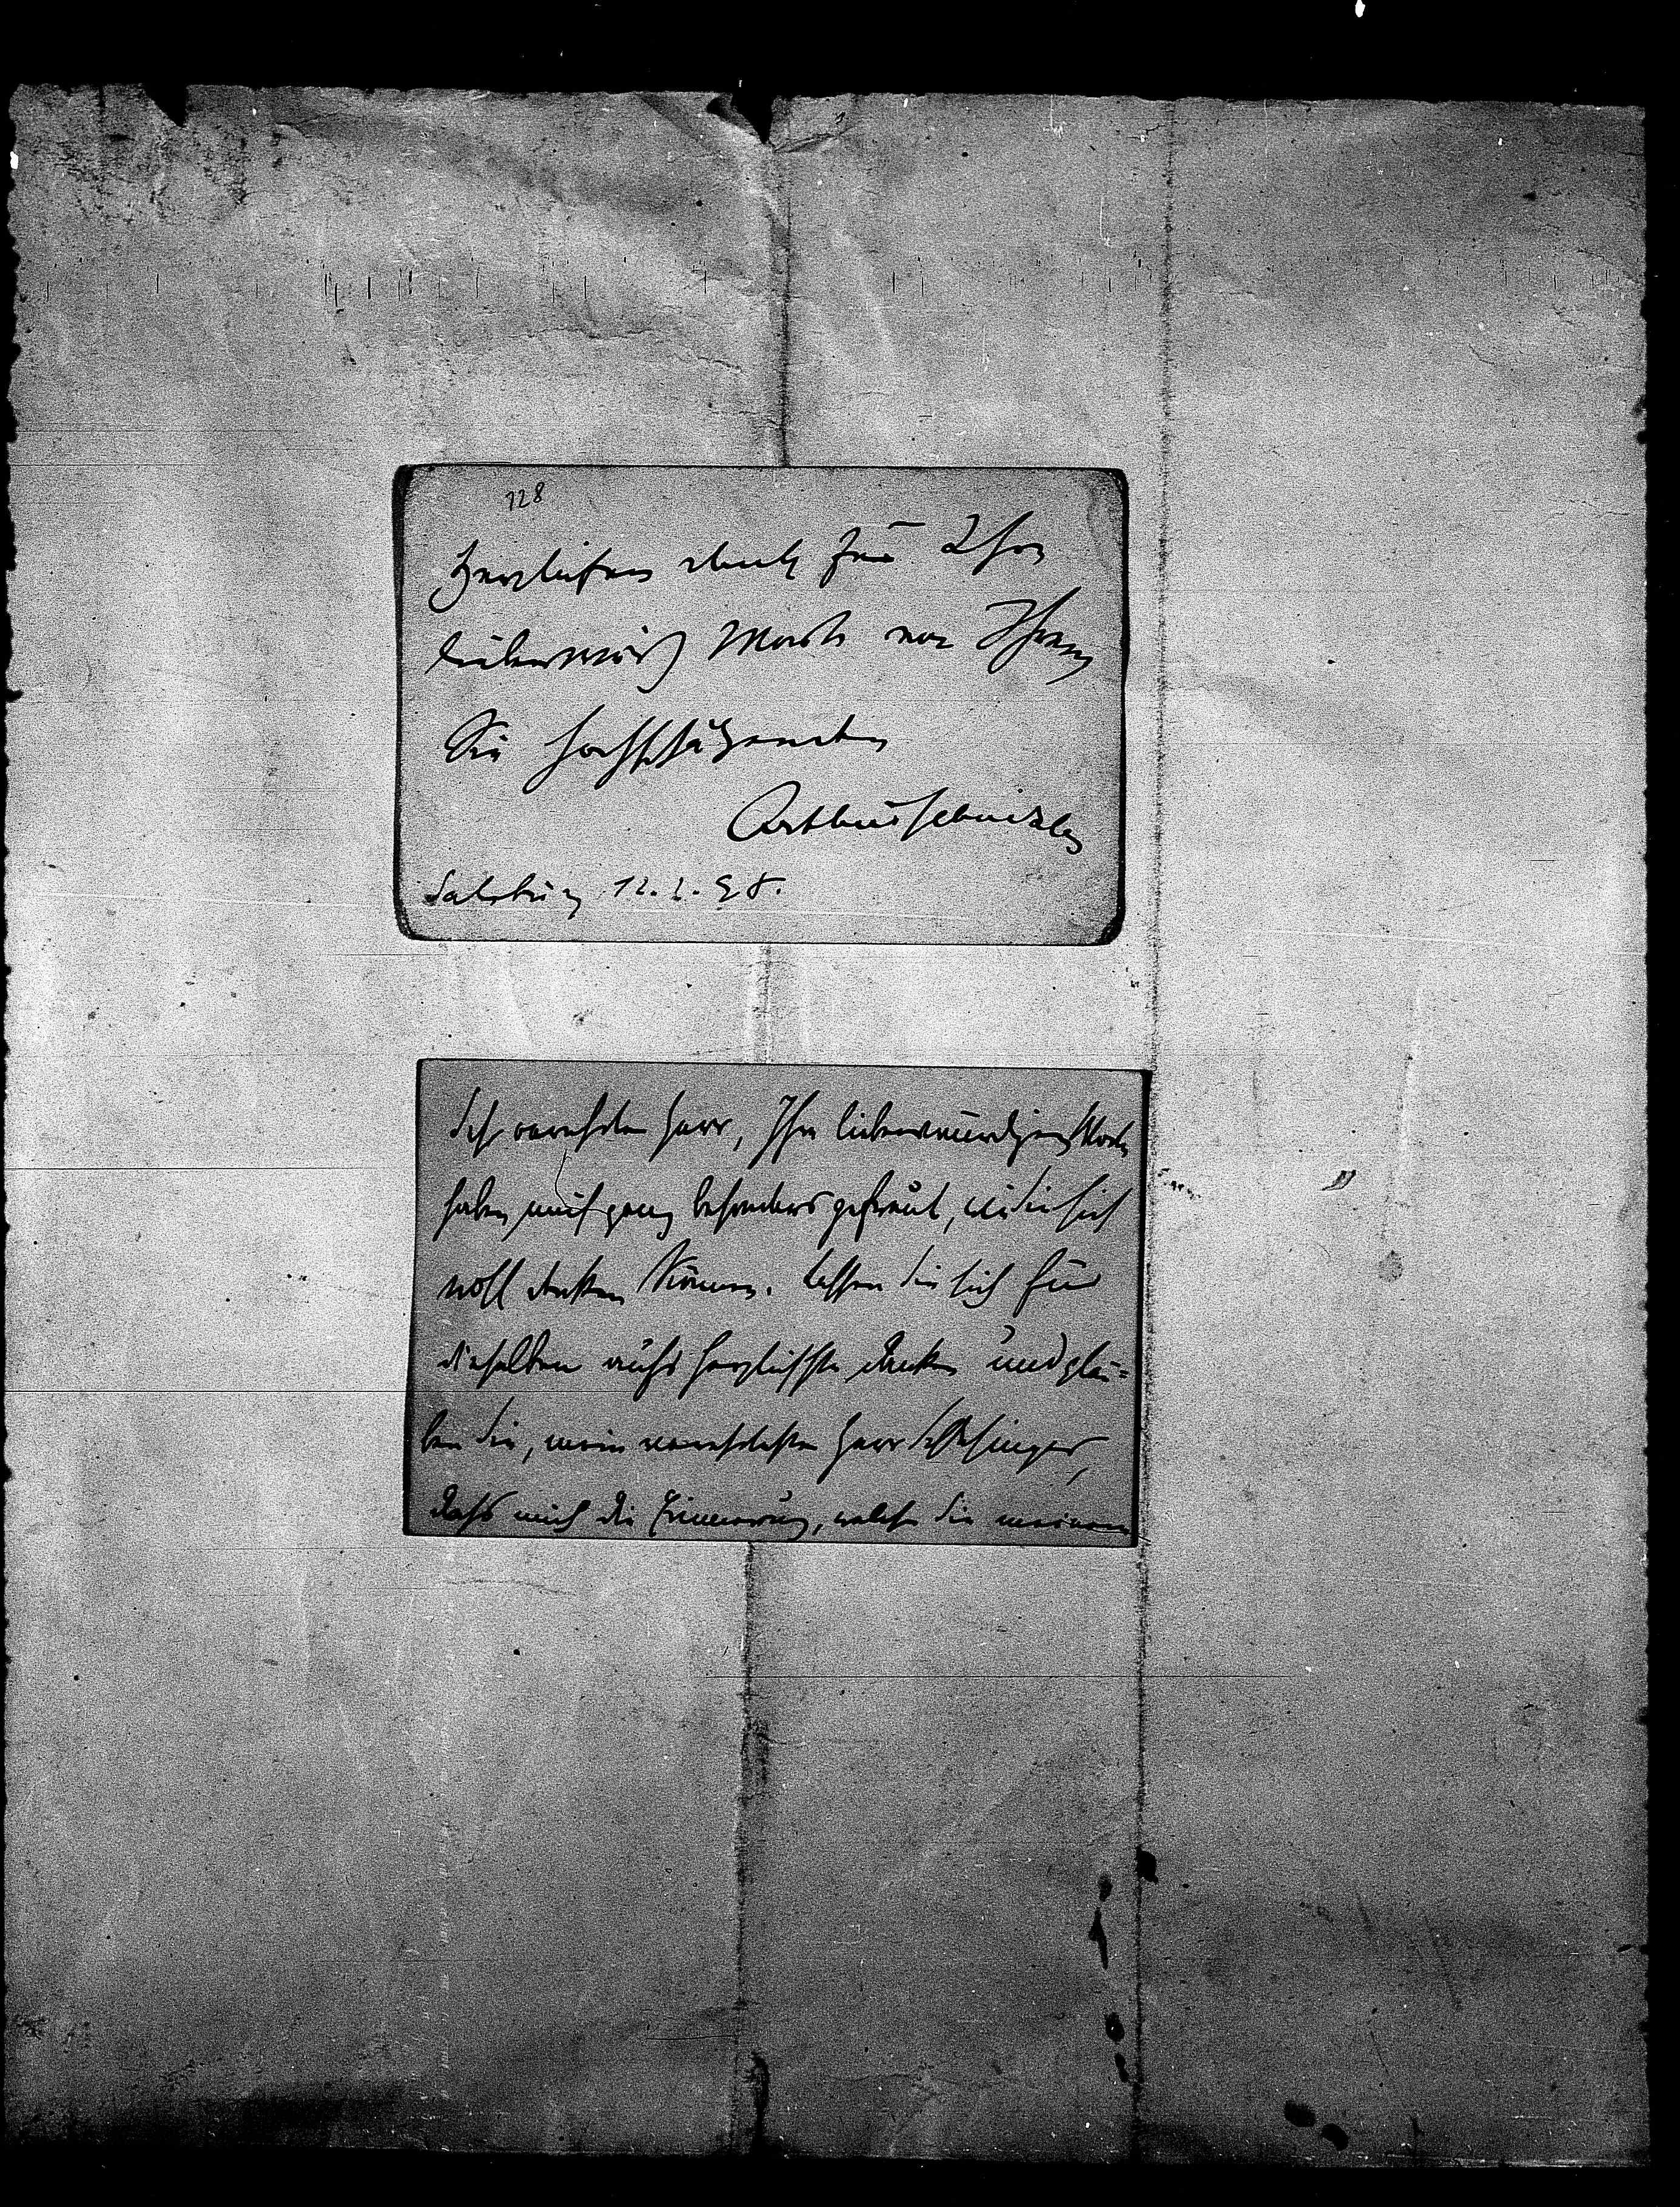 128
Herzlichen Dank für Ihre
liebenswürd Worte von Ihrem
Sie hochschätzenden
Arthur Schnitzler
Salzburg 12. 2. 98.
Sehr verehrter Herr, Ihre liebenswürdigen Worte
haben mich ganz besonders gefreut, wie Sie sich
wohl denken können. Lassen Sie sich für
dieselben aufs herzlichste danken und glau=
ben Sie, mein verehrtester Herr
dass mich die Erinnerung, welche Sie meinem